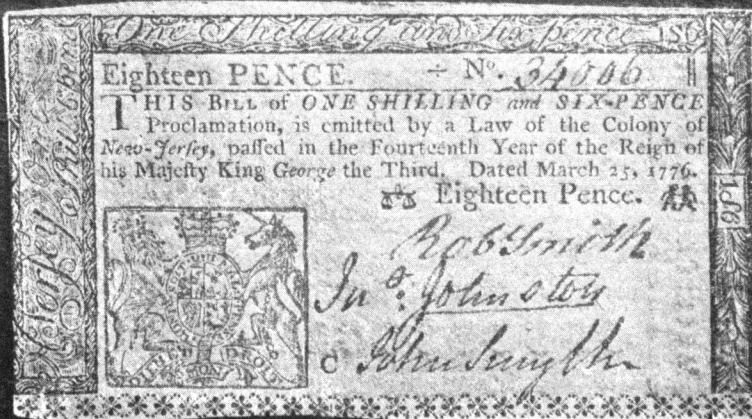 One Shilling and Six pence 1S6
Eighteen PENCE. ÷ No. 34006
THIS BILL of ONE SHILLING and SIX-PENCE
Proclamation, is emitted by a Law of the Colony of
New-Jerſey, paſſed in the Fourteenth Year of the Reign of
his Majeſty King George the Third. Dated March 25, 1776.
Eighteen Pence.
Rob Smith
Jno. Johnston
C John Smyth
N Jerſey
1S6
DIEU ET MON DROIT